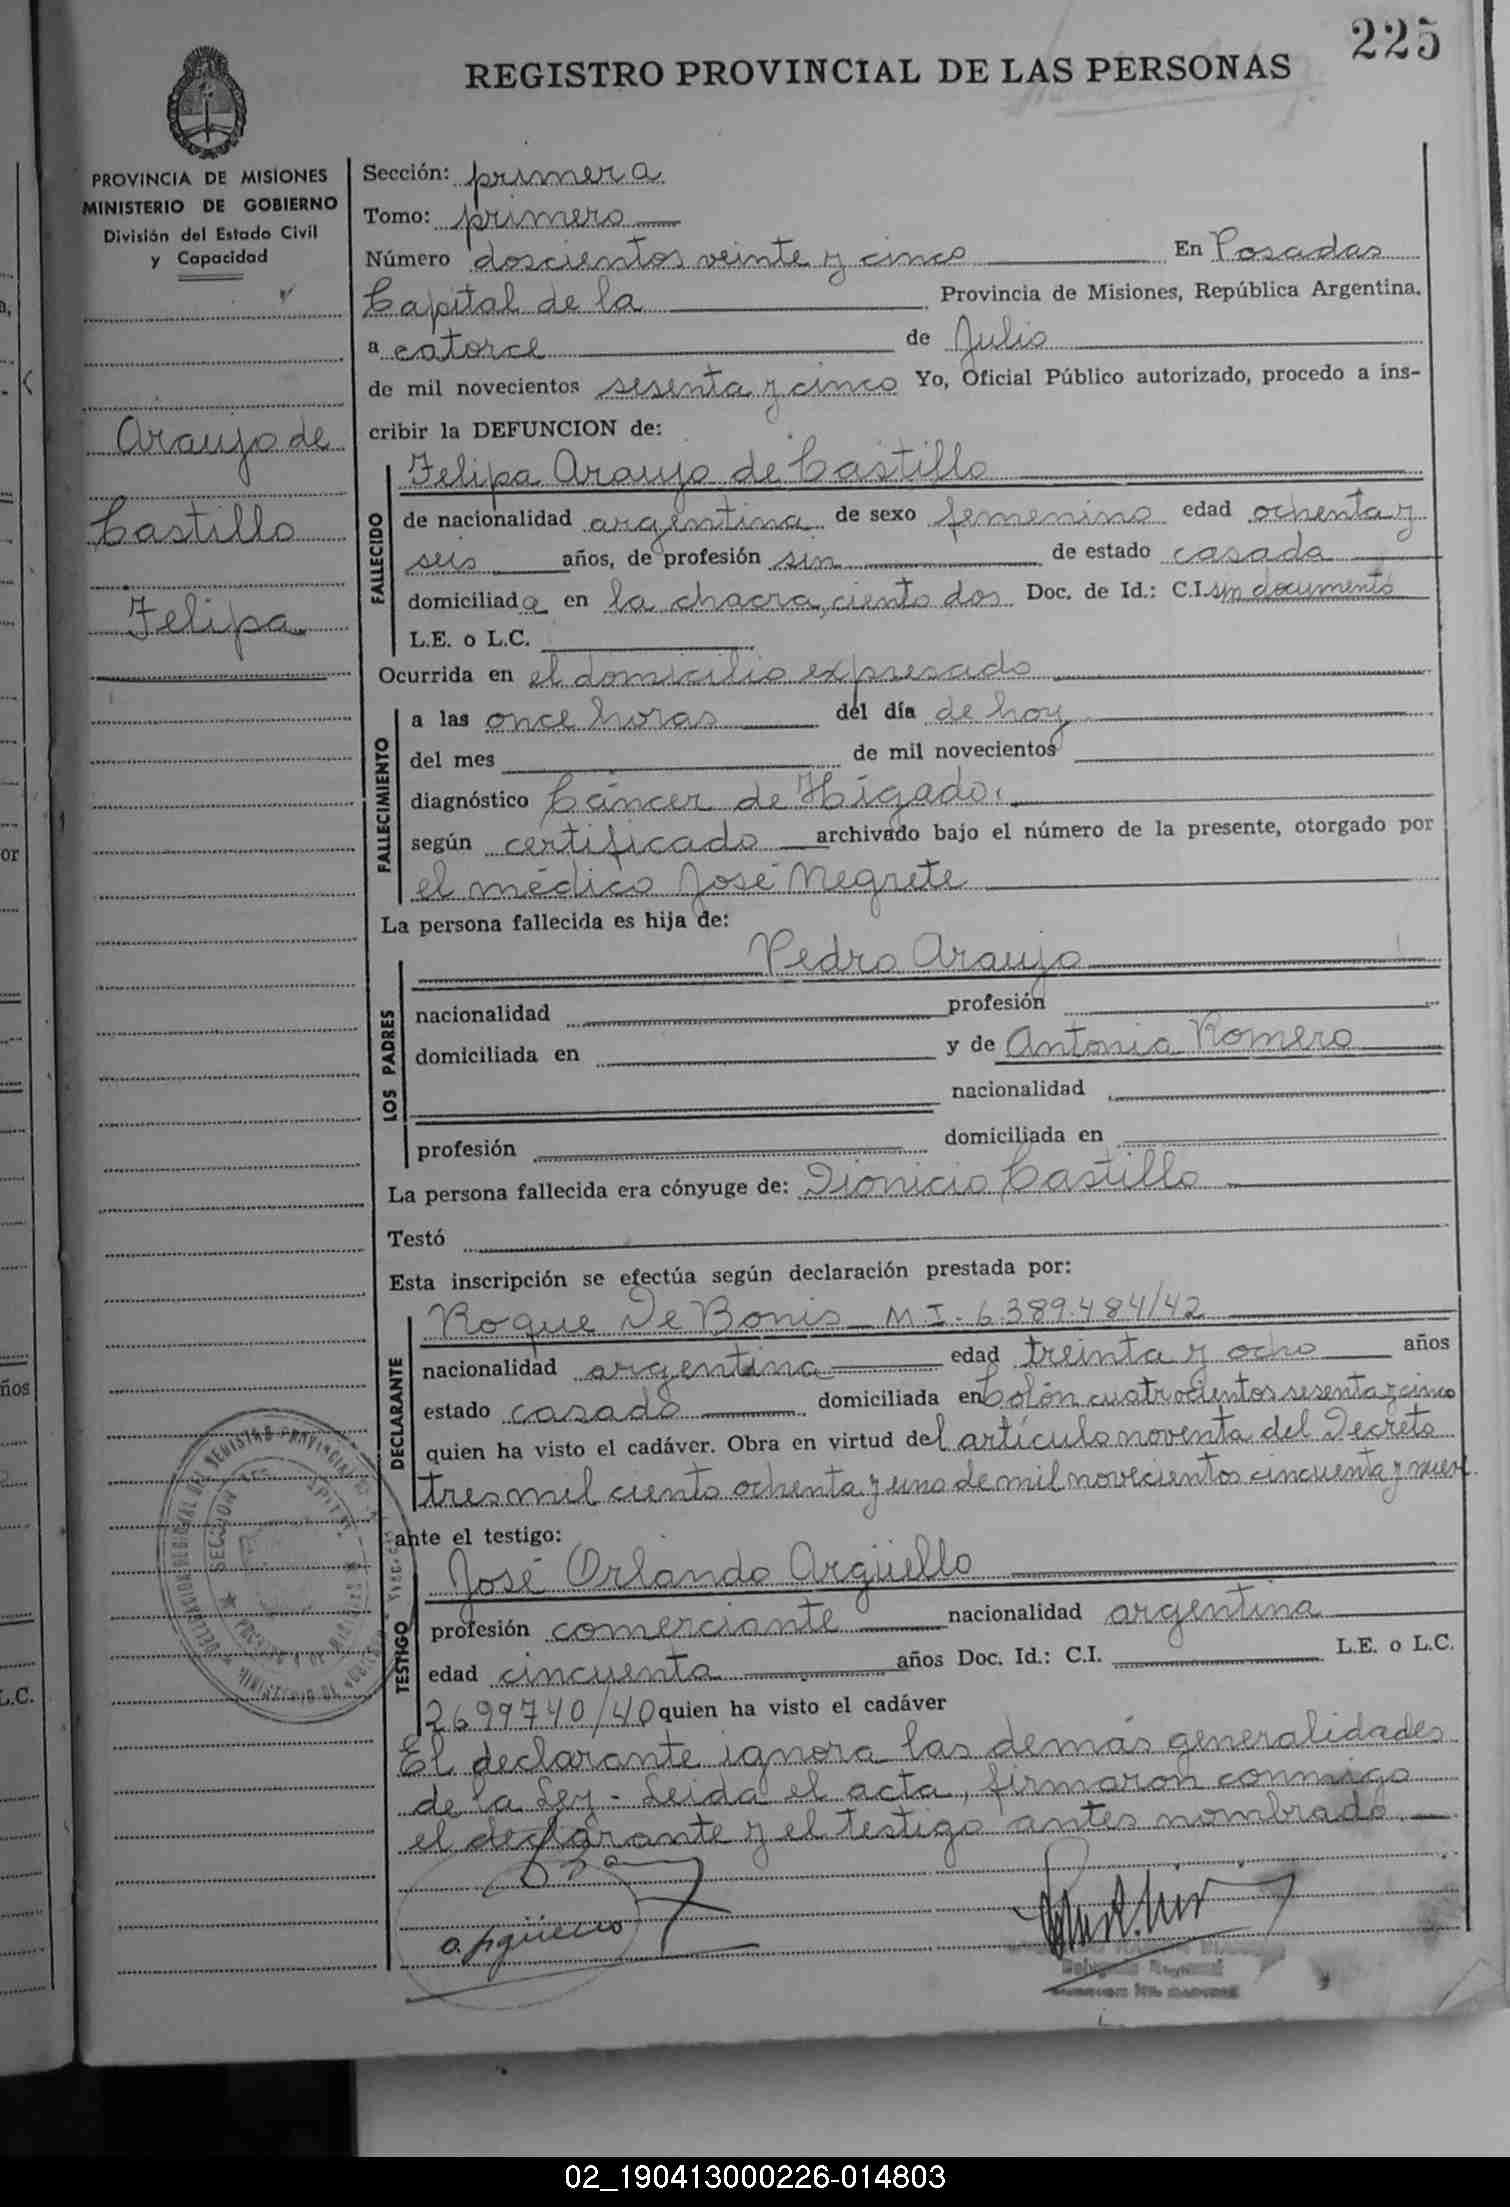 225
REGISTRO PROVINCIAL DE LAS PERSONAS
PROVINCIA DE MISIONES
MINISTERIO DE GOBIERNO
División del Estado Civil
y Capacidad
Araujo de
Castillo
Felipa
Sección: primera
Tomo: primero
Número doscientos veinte y cinco En Posadas
Capital de la Provincia de Misiones, República Argentina.
a catorce de Julio
de mil novecientos sesenta y cinco Yo, Oficial Público autorizado, procedo a ins-
cribir la DEFUNCION de:
FALLECIDO
Felipa Araujo de Castillo
de nacionalidad argentina de sexo femenino edad ochenta y
seis años, de profesión sin de estado casada
domiciliada en la chacra ciento dos Doc. de Id.: C.I. sin documento
L.E. o L.C.
Ocurrida en el domicilio expresado
FALLECIMIENTO
a las once horas del día de hoy
del mes de mil novecientos
diagnóstico Cáncer de Hígado.
según certificado archivado bajo el número de la presente, otorgado por
el médico José Negrete
La persona fallecida es hija de:
LOS PADRES
Pedro Araujo
nacionalidad profesión
domiciliada en y de Antonia Romero
nacionalidad
profesión domiciliada en
La persona fallecida era cónyuge de: Dionicio Castillo
Testó
Esta inscripción se efectúa según declaración prestada por:
DECLARANTE
Roque De Bonis M I. 6.389.484/42
nacionalidad argentina edad treinta y ocho años
estado casado domiciliada en Colón cuatrocientos sesenta y cinco
quien ha visto el cadáver. Obra en virtud del artículo noventa del Decreto
tres mil ciento ochenta y uno de mil novecientos cincuenta y nueve
ante el testigo:
TESTIGO
José Orlando Argüello
profesión comerciante nacionalidad argentina
edad cincuenta años Doc. Id.: C.I. L.E. o L.C.
2699740/40 quien ha visto el cadáver
El declarante ignora las demás generalidades
de la Ley - Leida el acta, firmaron conmigo
el declarante y el testigo antes nombrado.
02_190413000226-014803